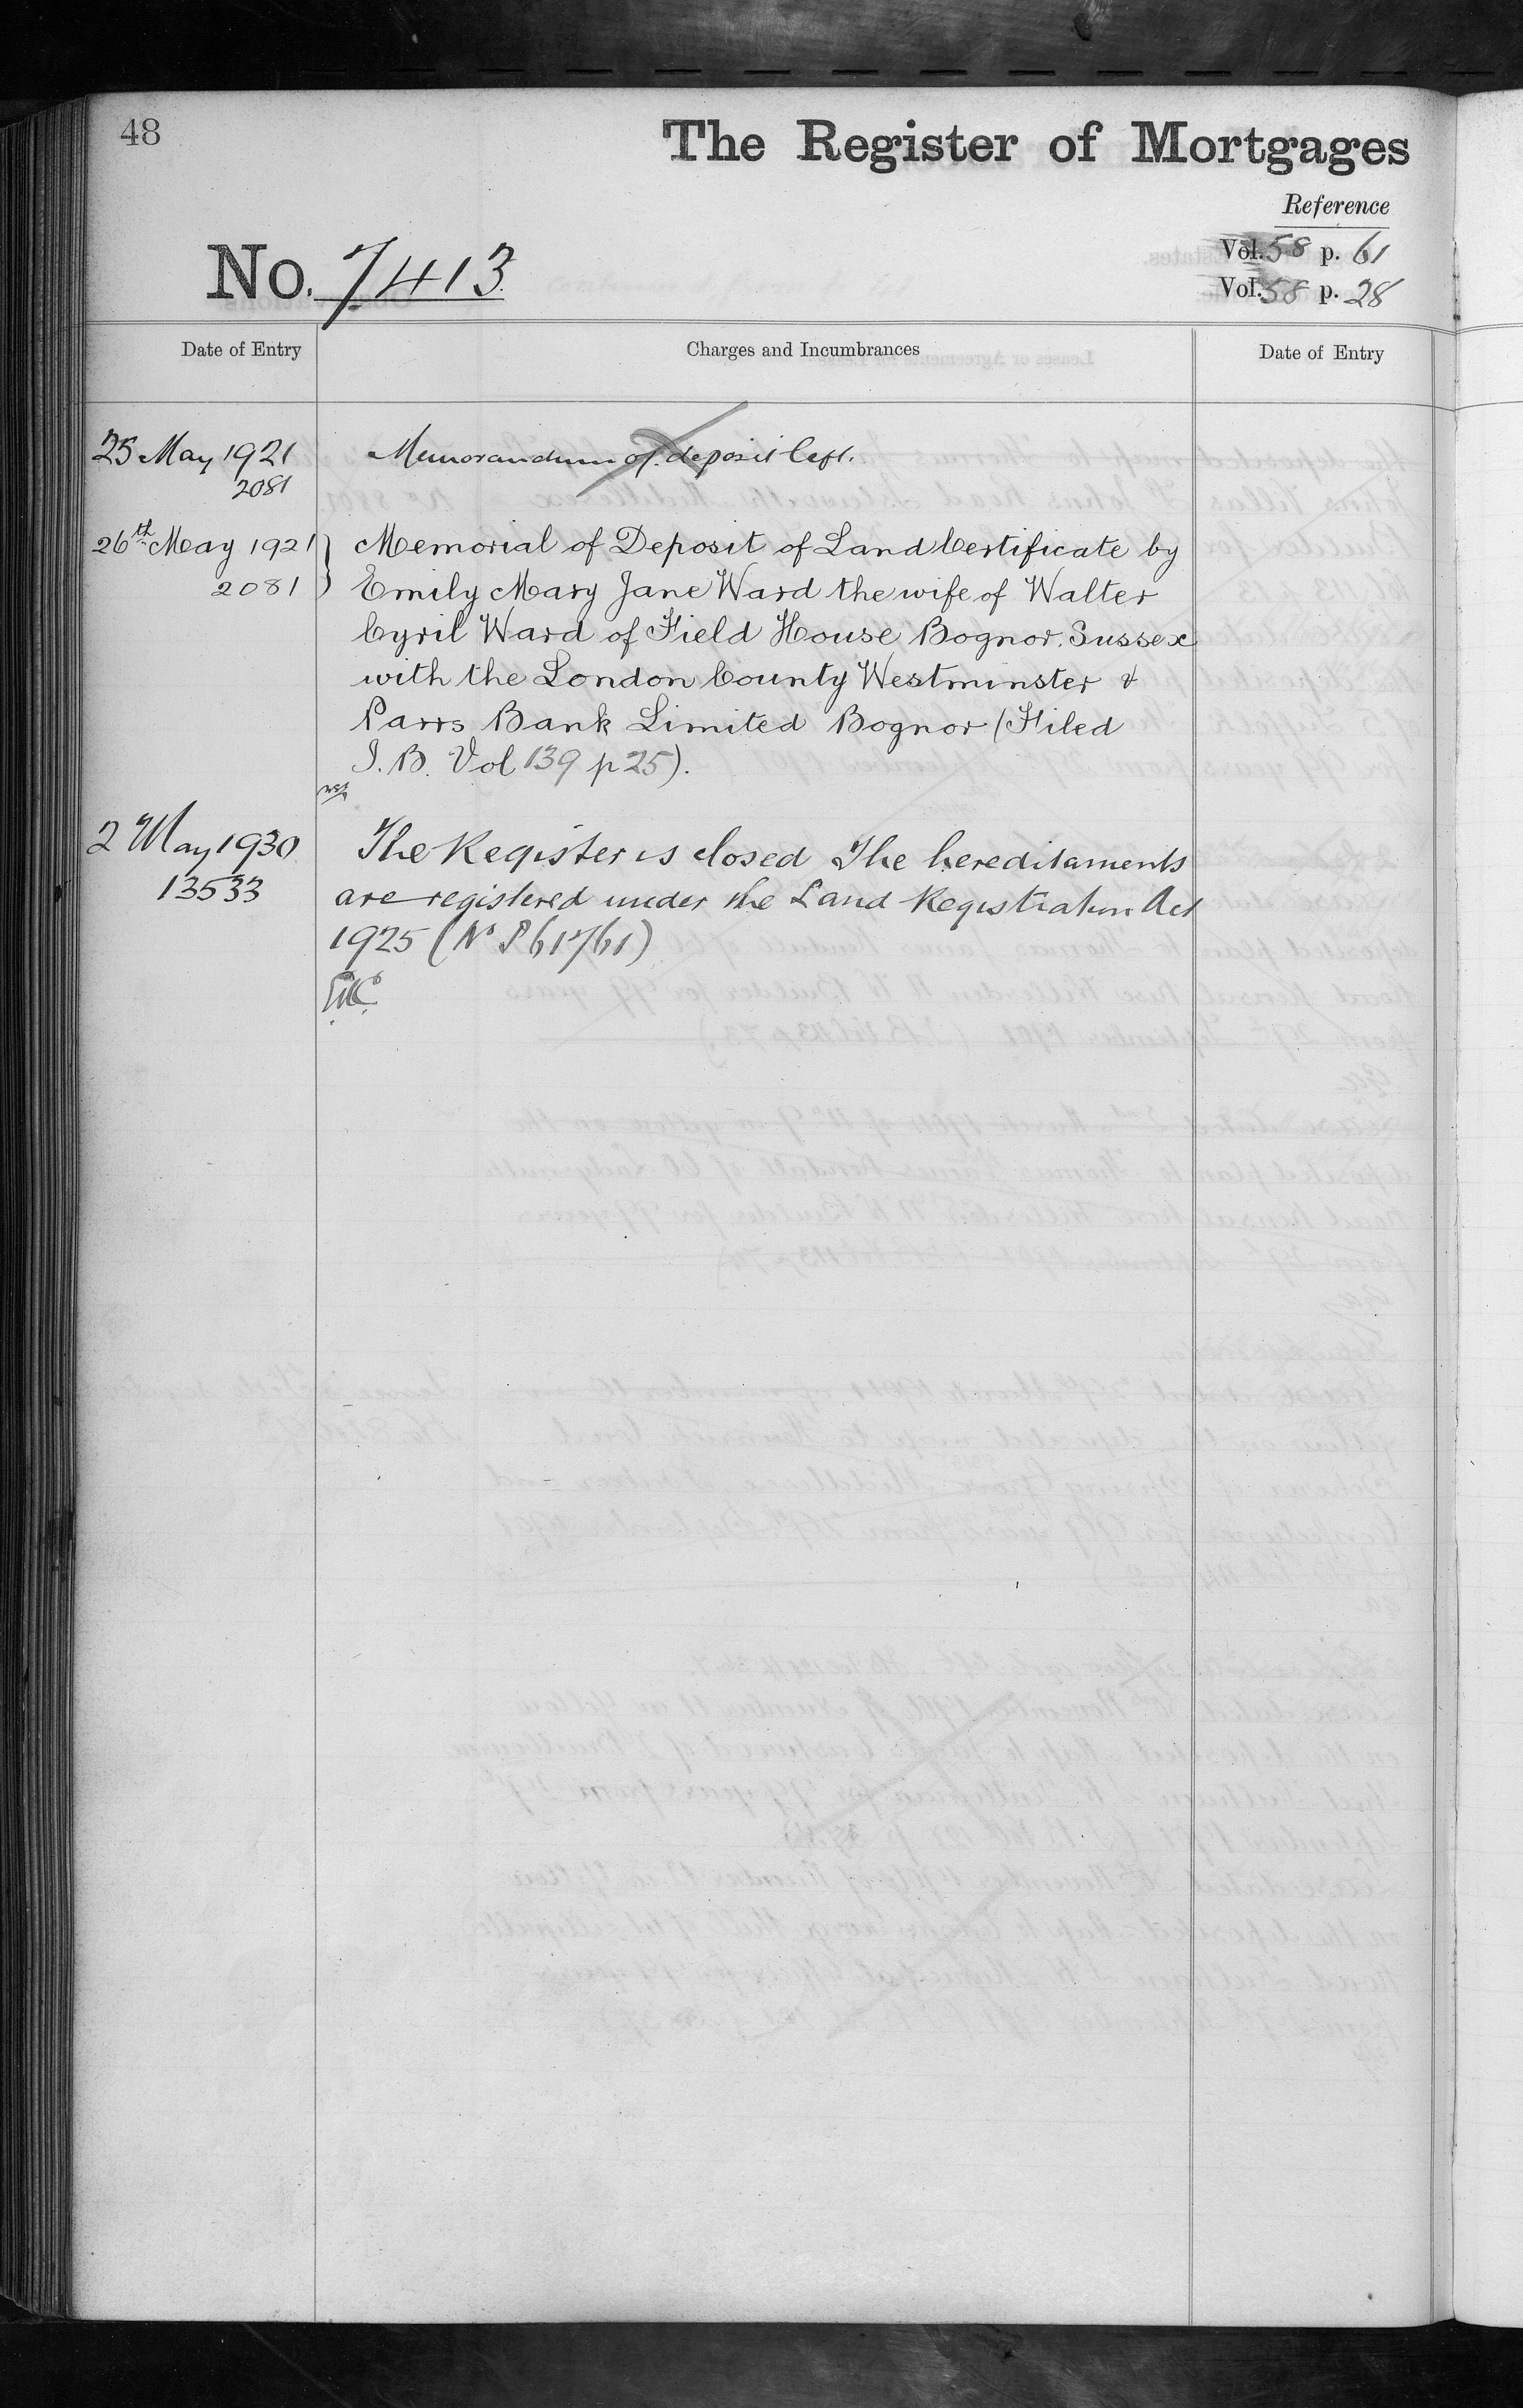 48
The Register of Mortgages
Reference
Vol. 58 p. 61
Vol. 58 p. 28
No. 7413.
Date of Entry
Charges and Incumbrances
Date of Entry
25 May 1921
Memorandum of deposit left.
2081
26th May 1921
Memorial of Deposit of Land Certificate by
2081
Emily Mary Jane Ward the wife of Walter
Cyril Ward of Field House Bognor. Sussex
with the London County Westminster &
Parrs Bank Limited Bognor (Filed
I.B. Vol 139 p 25).
2 May 1930
The Register is closed The hereditaments
13533
are registered under the Land Registration Act
1925 (No P61761)